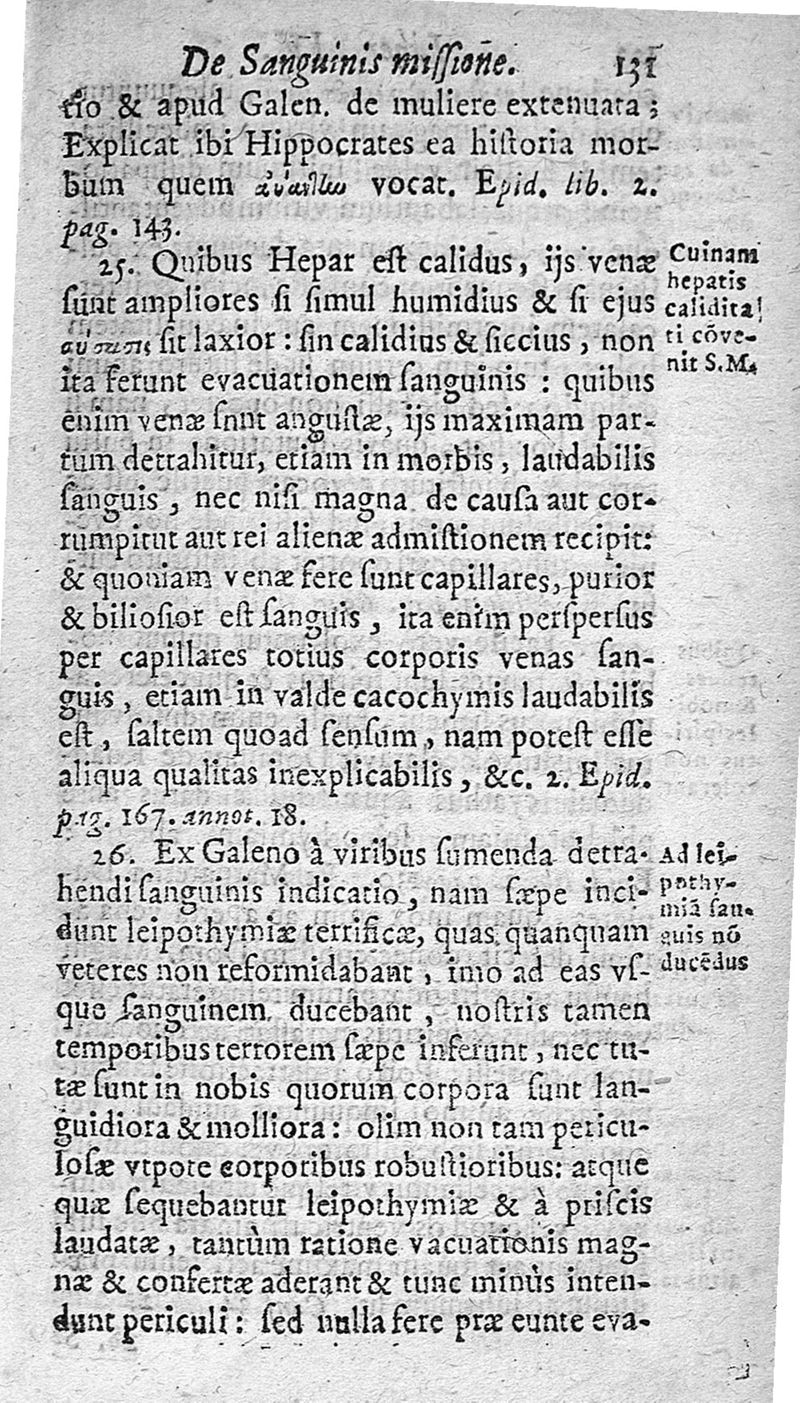 De Sanguinis miſſione. 131
tio & apud Galen. de muliere extenuata ;
Explicat ibi Hippocrates ea hiſtoria mor-
bum quem vocat. Epid. lib. 2.
pag. 143.
25. Quibus Hepar eſt calidus, ijs venæ
ſunt ampliores ſi ſimul humidius & ſi ejus
ſit laxior : ſin calidius & ſiccius, non
ita ferunt evacuationem ſanguinis : quibus
enim venæ ſnnt anguſtæ, ijs maximam par-
tum detrahitur, etiam in morbis, laudabilis
ſanguis, nec niſi magna de cauſa aut cor-
rumpitut aut rei alienæ admiſtionem recipit:
& quoniam venæ fere ſunt capillares, purior
& bilioſior eſt ſanguis, ita enim perſperſus
per capillares totius corporis venas ſan-
guis, etiam in valde cacochymis laudabilis
eſt, ſaltem quoad ſenſum, nam poteſt eſſe
aliqua qualitas inexplicabilis, &c. 2. Epid.
pag. 167. annot. 18.
26. Ex Galeno à viribus ſumenda detra-
hendi ſanguinis indicatio, nam ſæpe inci-
dunt leipothymiæ terrificæ, quas quanquam
veteres non reformidabant, imo ad eas vſ-
que ſanguinem ducebant, noſtris tamen
temporibus terrorem ſæpe inferunt, nec tu-
tæ ſunt in nobis quorum corpora ſunt lan-
guidiora & molliora : olim non tam pericu-
loſæ vtpote corporibus robuſtioribus: atque
quæ ſequebantur leipothymiæ & à priſcis
laudatæ, tantùm ratione vacuationis mag-
næ & confertæ aderant & tunc minùs inten-
dunt periculi : ſed nulla fere præ eunte eva-
Cuinam
hepatis
calidita-
ti cõve-
nit S.M.
Ad lei-
pothy-
miã ſan-
guis nõ
ducẽdus